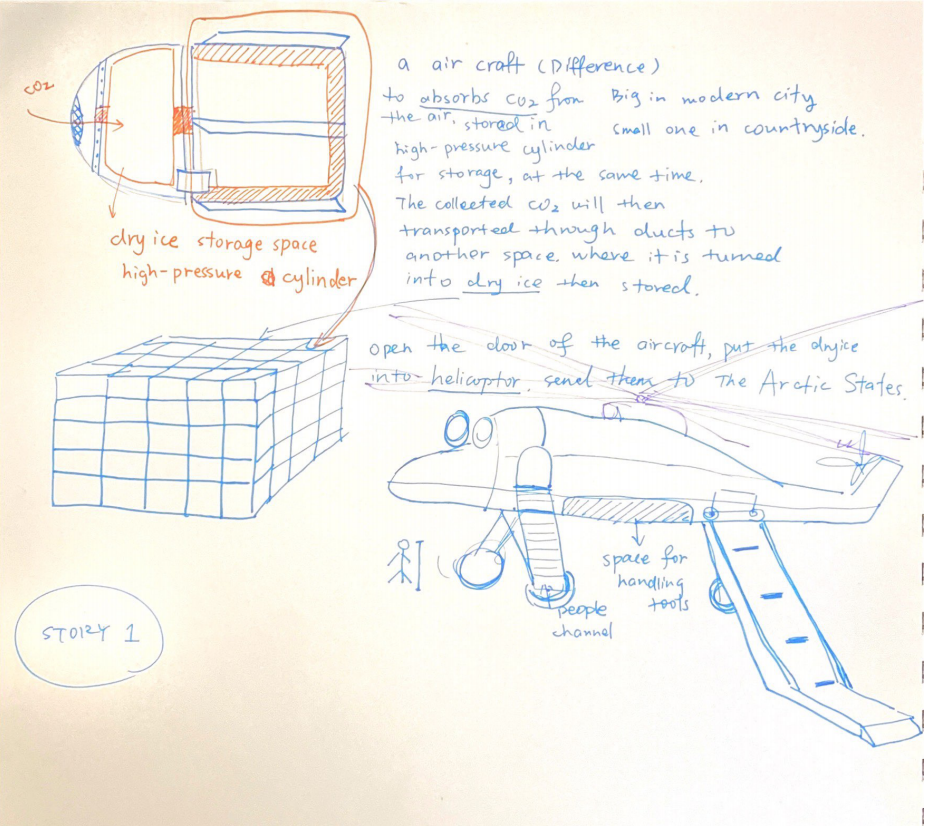 CO2
dry ice storage space
high-pressure cylinder
a air craft (Difference)
to absorbs CO2 from Big in modern city
the air, stored in small one in countryside.
high-pressure cylinder
for storage, at the same time.
The collected CO2 will then
transported through ducts to
another space. where it is turned
into dry ice then stored.
open the door of the aircraft, put the dryice
into helicoptor. send them to The Arctic States.
space for
handling
tools
people
channel
STORY 1